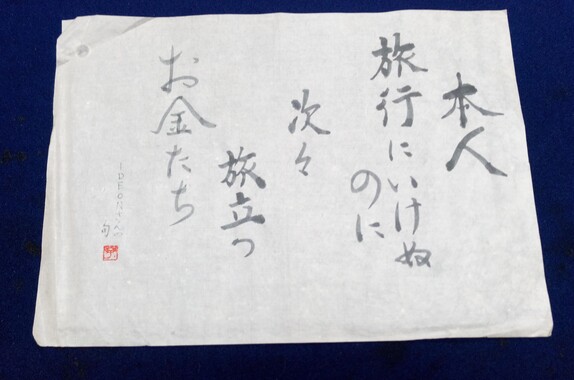 本人
旅行にいけぬ
のに
次々
旅立つ
お金たち
句